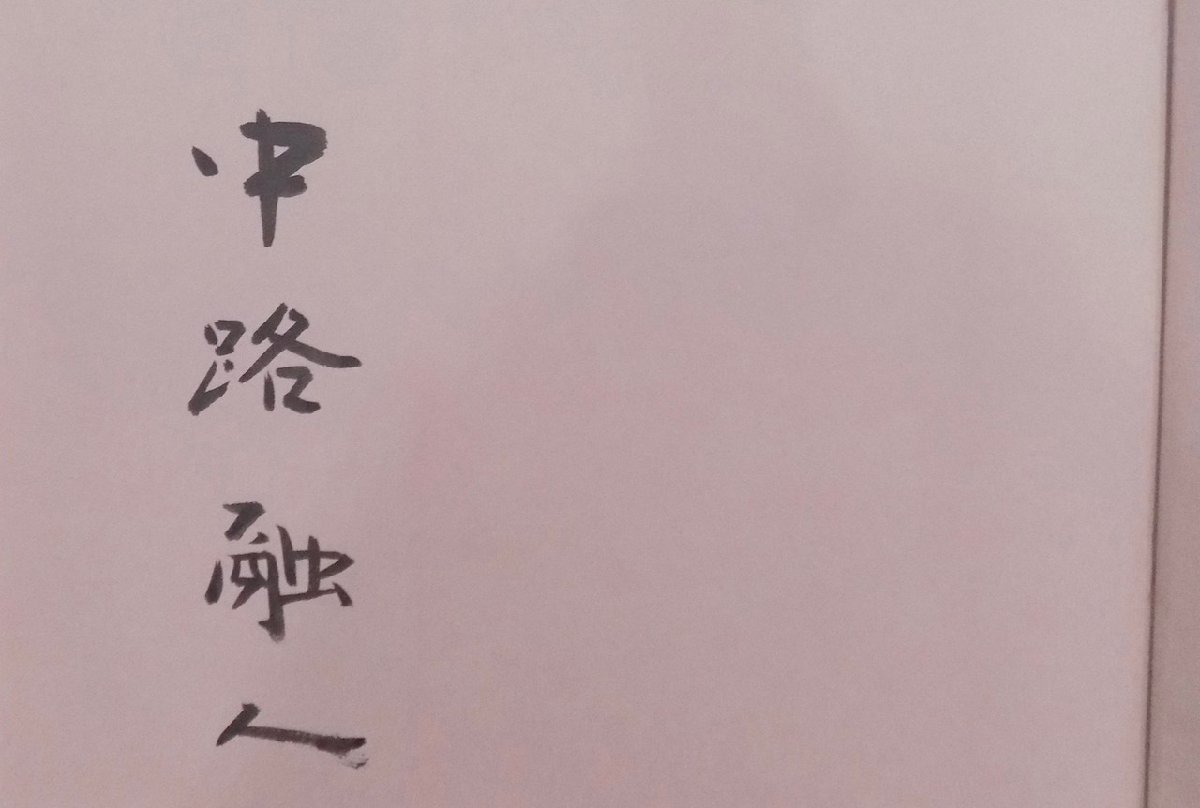 中路融人